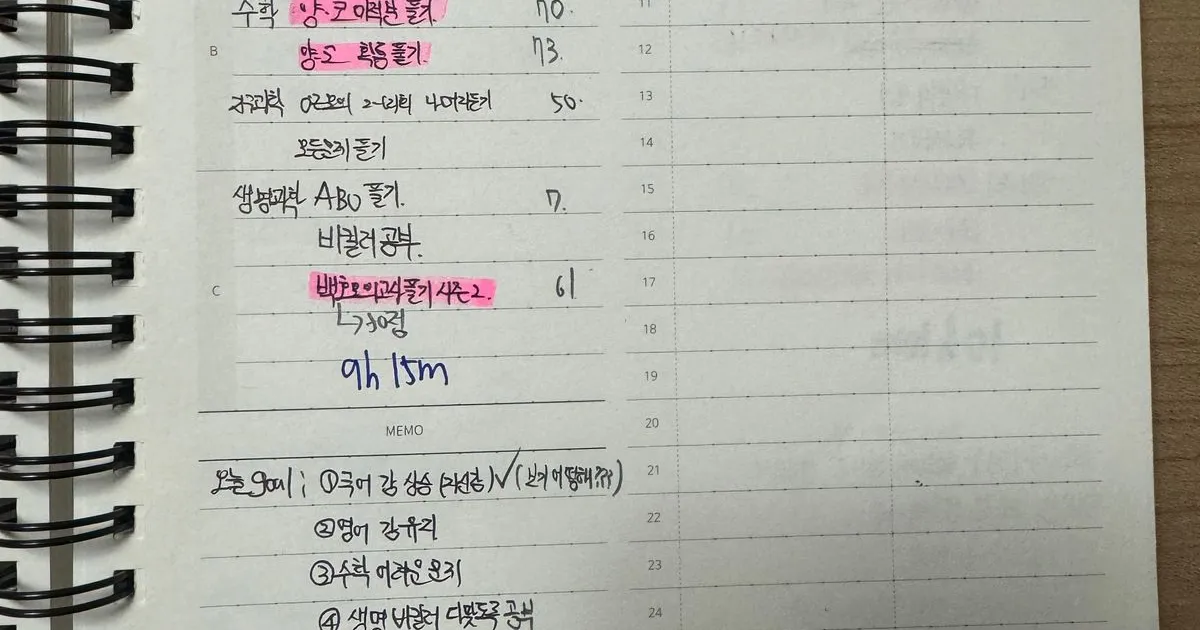 수학 양.코 미적분 풀기. 70. 11
B 양.도 확통 풀기. 73. 12
지구과학 2-1회 나머지듣기 50. 13
풀기 14
생명과학 ABO 풀기. 7. 15
비킬러 공부. 16
C 백호모의고사풀기 시즌2. 61 17
18
9h 15m 19
MEMO 20
오늘 goal ; ①국어 감 상승 (자신감) ✓ 21
②영어 감 유지 22
③수학 어려운 문제 23
④ 생명 비킬러 다맞도록 공부 24